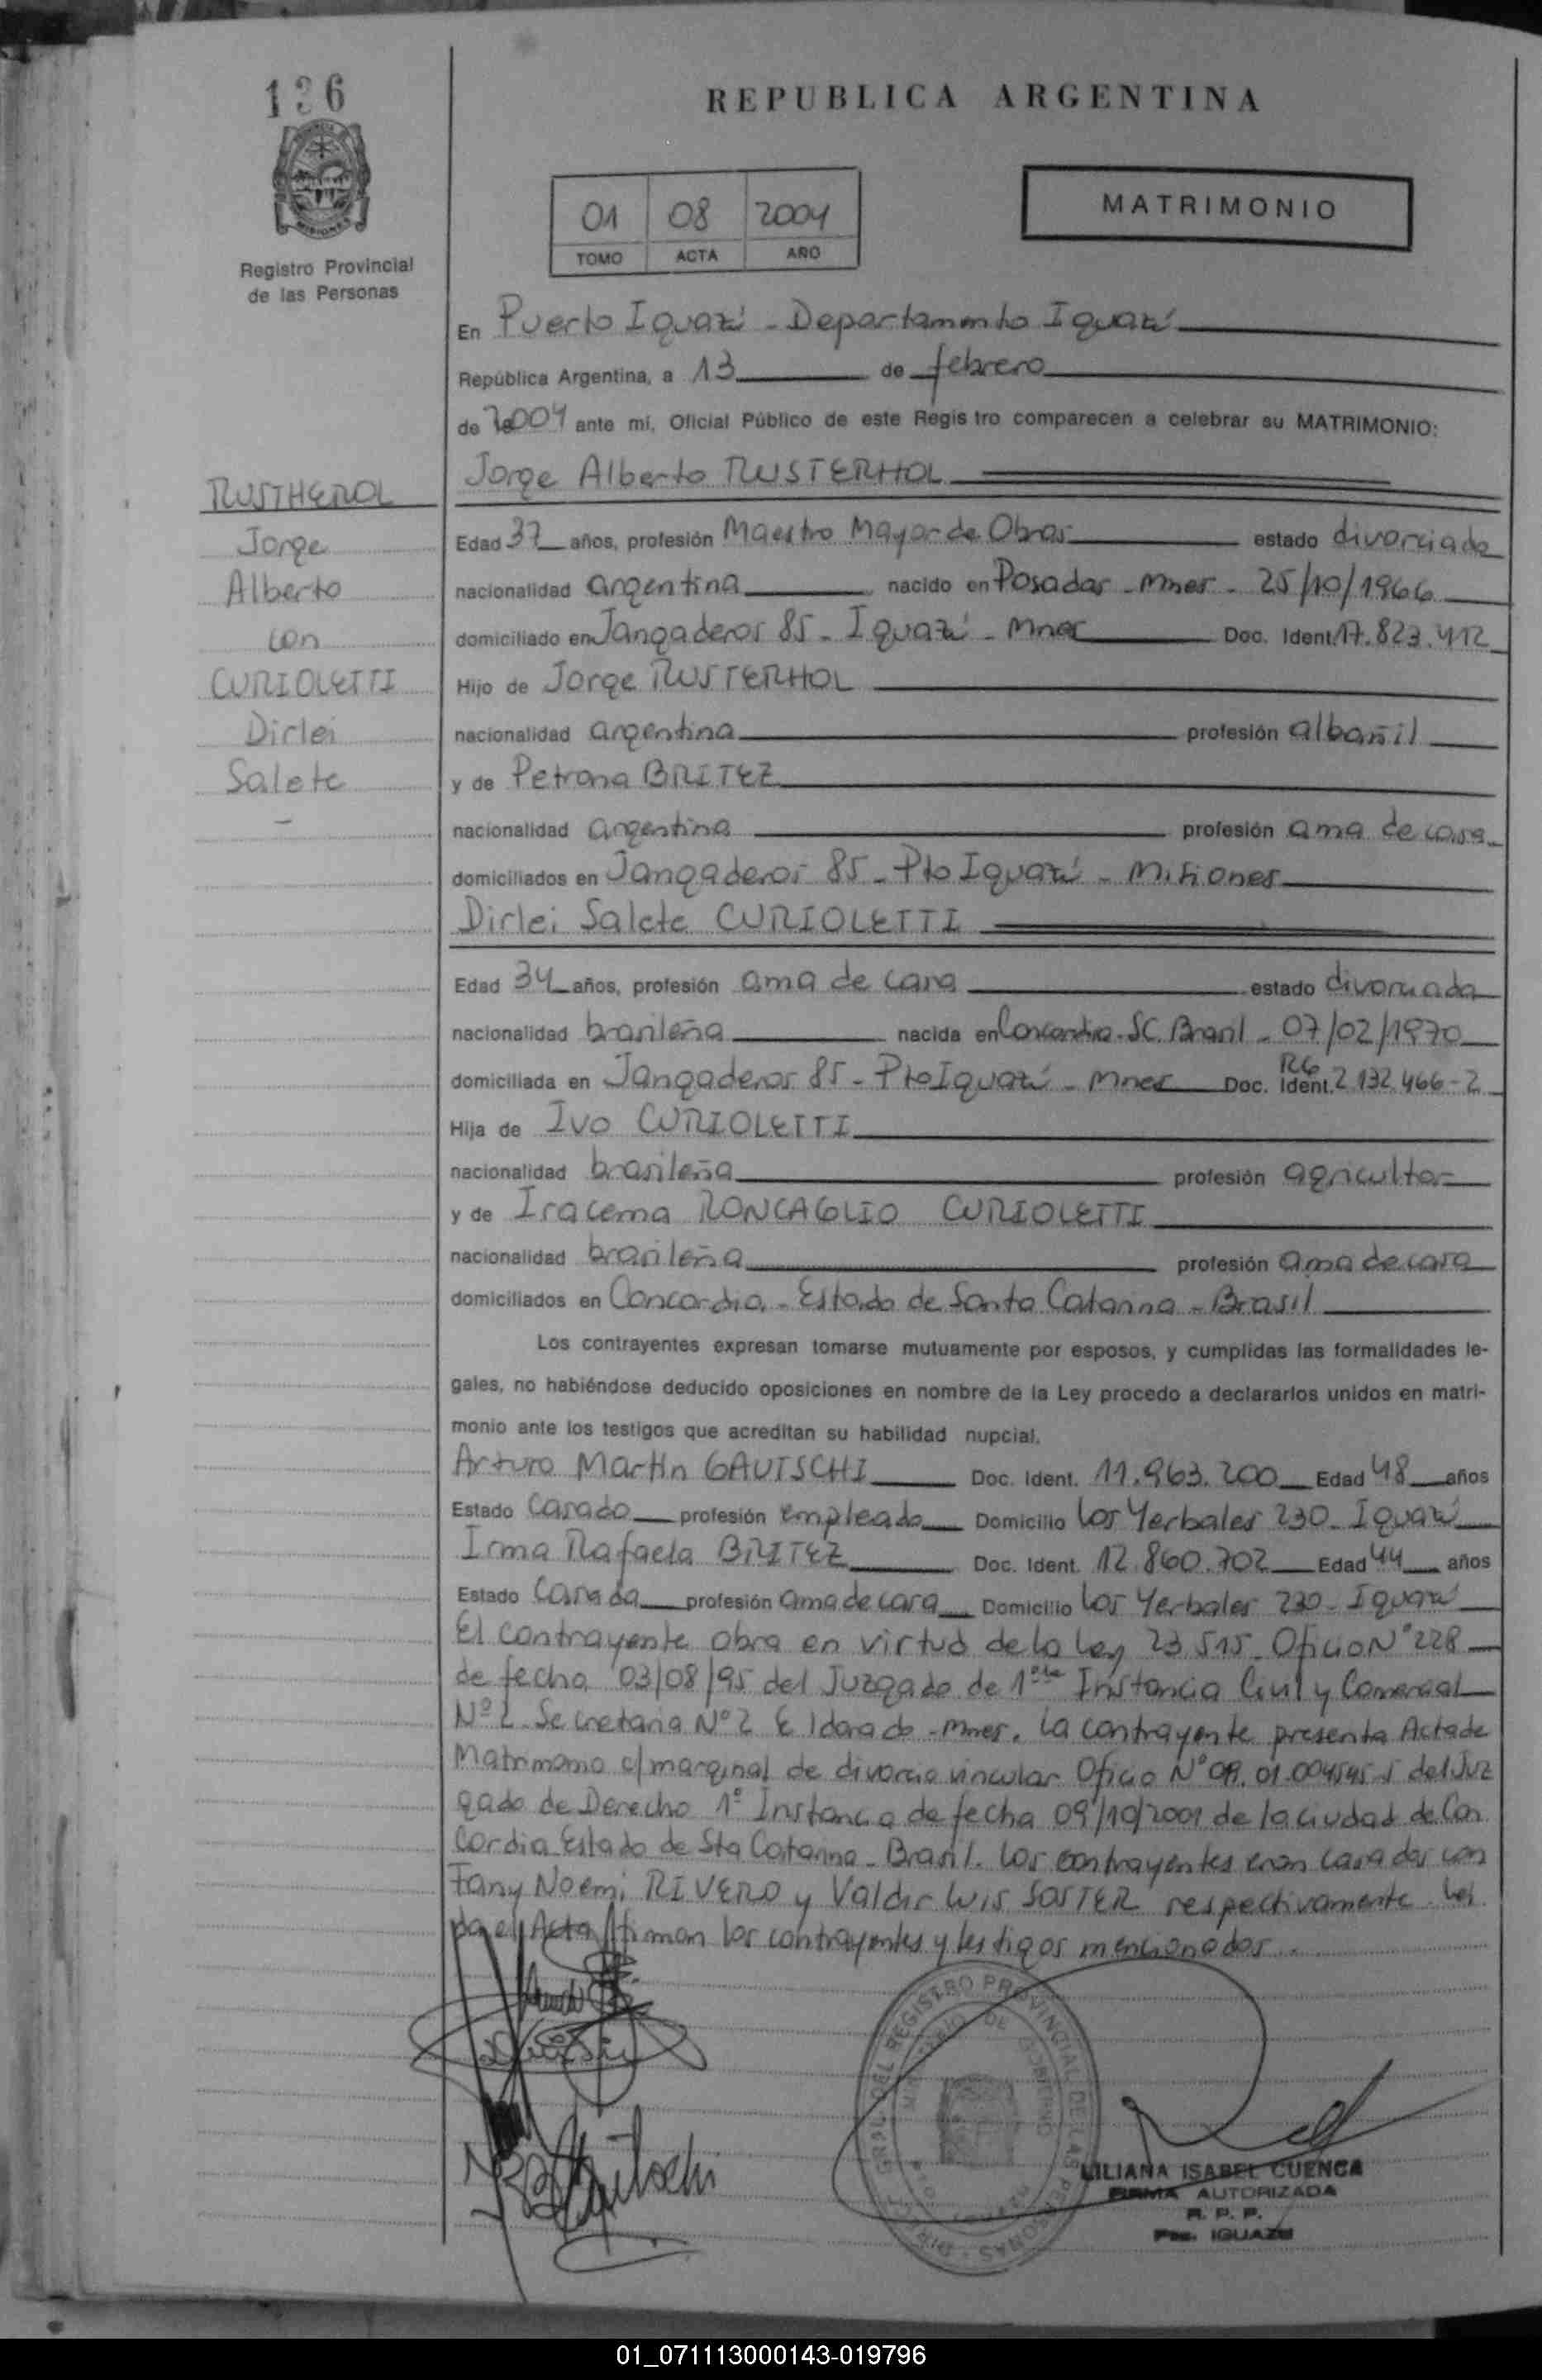 136
REPUBLICA ARGENTINA
MATRIMONIO
01 08 2004
TOMO ACTA AÑO
Registro Provincial
de las Personas
En Puerto Iguazú - Departamento Iguazú
República Argentina, a 13 de febrero
de 2004 ante mí, Oficial Público de este Regis tro comparecen a celebrar su MATRIMONIO:
Jorge Alberto RUSTERHOL
RUSTHEROL
Jorge
Alberto
con
CURIOLETTI
Dirlei
Salete
-
Edad 37 años, profesión Maestro Mayor de Obras estado divorciado
nacionalidad argentina nacido en Posadas - Mnes - 25/10/1966
domiciliado en Jangaderos 85 - Iguazú - Mnes Doc. Ident. 17.823.412
Hijo de Jorge RUSTERHOL
nacionalidad argentina profesión albañil
y de Petrona BRITEZ
nacionalidad argentina profesión ama de casa
domiciliados en Jangaderos 85 - Pto Iguazú - Misiones
Dirlei Salete CURIOLETTI
Edad 34 años, profesión ama de casa estado divorciada
nacionalidad brasileña nacida en Concordia - SC. Brasil - 07/02/1970
domiciliada en Jangaderos 85 - Pto Iguazú - Mnes Doc. Ident. RG 2.132.466-2
Hija de Ivo CURIOLETTI
nacionalidad brasileña profesión agricultor
y de Iracema RONCAGLIO CURIOLETTI
nacionalidad brasileña profesión ama de casa
domiciliados en Concordia - Estado de Santa Catarina - Brasil
Los contrayentes expresan tomarse mutuamente por esposos, y cumplidas las formalidades le-
gales, no habiéndose deducido oposiciones en nombre de la Ley procedo a declararlos unidos en matri-
monio ante los testigos que acreditan su habilidad nupcial.
Arturo Martín GAUTSCHI Doc. Ident. 11.963.200 Edad 48 años
Estado Casado profesión empleado Domicilio Los Yerbales 230 - Iguazú
Irma Rafaela BRITEZ Doc. Ident. 12.860.702 Edad 44 años
Estado Casada profesión ama de casa Domicilio Los Yerbales 230 - Iguazú
El contrayente obra en virtud de la Ley 23.515. Oficio N° 228
de fecha 03/08/95 del Juzgado de 1era Instancia Civil y Comercial
N° 2 Secretaria N° 2 Eldorado - Mnes. La contrayente presenta Acta de
Matrimonio c/marginal de divorcio vincular Oficio N° del Juz
gado de Derecho 1° Instancia de fecha 09/10/2001 de la ciudad de Con
cordia Estado de Sta Catarina - Brasil. Los contrayentes eran casados con
Fany Noemi RIVERO y Valdir Luis SOSTER respectivamente. Leí
da el Acta firman los contrayentes y testigos mencionados.
Gautschi
DIRECC. GRAL. DEL REGISTRO PROVINCIAL DE LAS PERSONAS
MINISTERIO DE GOBIERNO
LILIANA ISABEL CUENCA
FIRMA AUTORIZADA
R. P. P.
Pto. IGUAZU
01_071113000143-019796